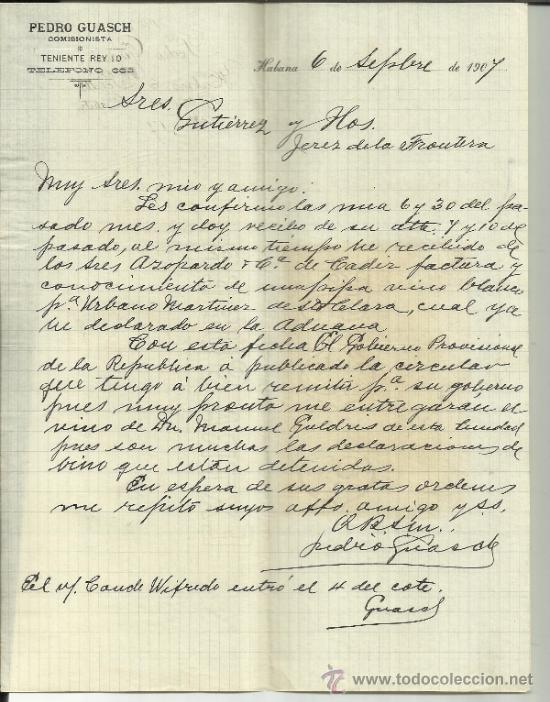 PEDRO GUASCH
COMISIONISTA
TENIENTE REY 10
TELEFONO 663
Habana 6 de Sepbre de 1907
Sres.
Gutiérrez y Hos.
Jerez de la Frontera
Muy Sres. mio y amigo:
Les confirmo las mia 6 y 30 del pa-
sado mes. y doy recibo de su atta. 7 y 10 de
pasado, al mismo tiempo he recibido de
los Sres Azopardo y Ca. de Cadiz factura y
conocimiento de una pipa vino blanco
pa. Urbano Martinez de Sta Clara, cual ya
he declarado en la Aduana
Con esta fecha El Gobierno Provisional
de la Republica á publicado la circular
que tengo á bien remitir pa. su gobierno
pues muy pronto me entregarán el
vino de Dn. Manuel de esta
pues son muchas las declaraciones de
vino que están detenidas.
En espera de sus gratas ordenes
me repito suyos affo. amigo y SS.
Q.B.S.M.
Pedro Guasch
El v/. Conde Wifredo entró el 4 del cote.
Guasch
todocoleccion
www.todocoleccion.net